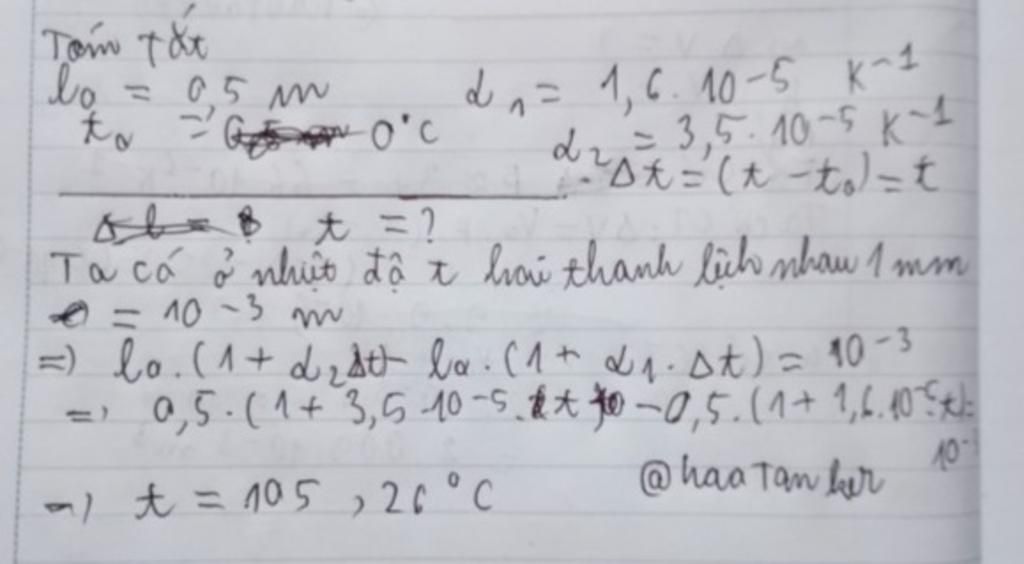 Tóm tắt
l₀ = 0,5 m α₁ = 1,6.10⁻⁵ K⁻¹
t₀ = 0°C α₂ = 3,5.10⁻⁵ K⁻¹
Δt = (t - t₀) = t
t = ?
Ta có ở nhiệt độ t hai thanh lệch nhau 1mm
= 10⁻³ m
=> l₀.(1 + α₂Δt) - l₀.(1 + α₁.Δt) = 10⁻³
=> 0,5.(1 + 3,5.10⁻⁵.t) - 0,5.(1 + 1,6.10⁻⁵.t) =
10⁻³
=> t = 105,26°C
@haaTanker